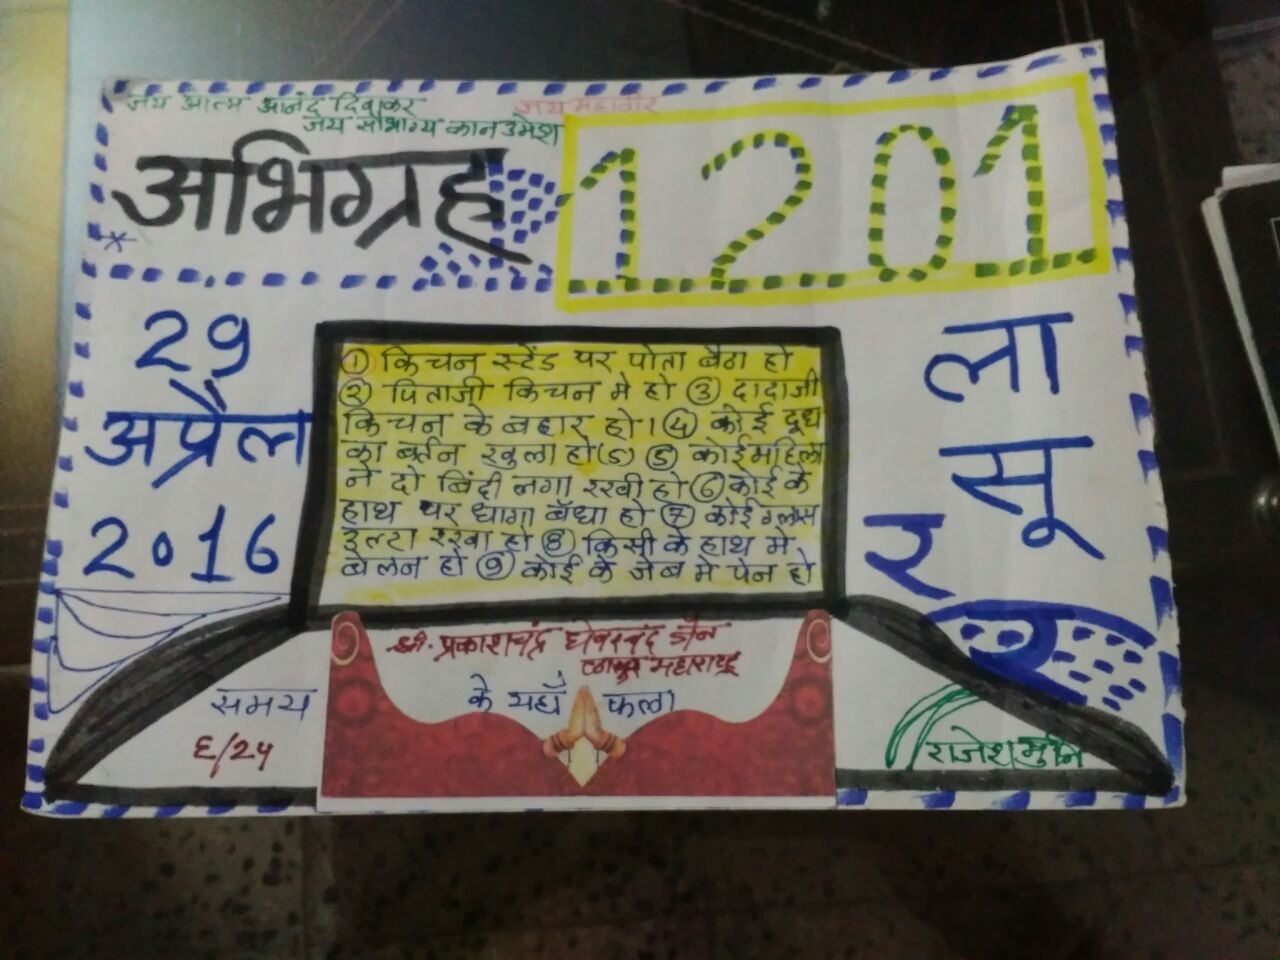 जय आत्म आनंद दिवाकर
जय महावीर
जय सौभाग्य कान उमेश
अभिग्रह
1201
29
अप्रैल
2016
① किचन स्टेंड पर पोता बैठा हो
② पिताजी किचन मे हो ③ दादाजी
किचन के बहार हो। ④ कोई दूध
का बर्तन खुला हो(5) ⑤ कोई महिला
ने दो बिंदी लगा रखी हो ⑥ कोई के
हाथ पर धागा बँधा हो ⑦ कोई ग्लास
उल्टा रखा हो ⑧ किसी के हाथ मे
बेलन हो ⑨ कोई के जेब मे पेन हो
ला
सू
र
र
श्री. प्रकाशचंद्र घेवरचंद जैन
लासूर महाराष्ट्र
के यहाँ फला
समय
६/२५
राजेशमुनि